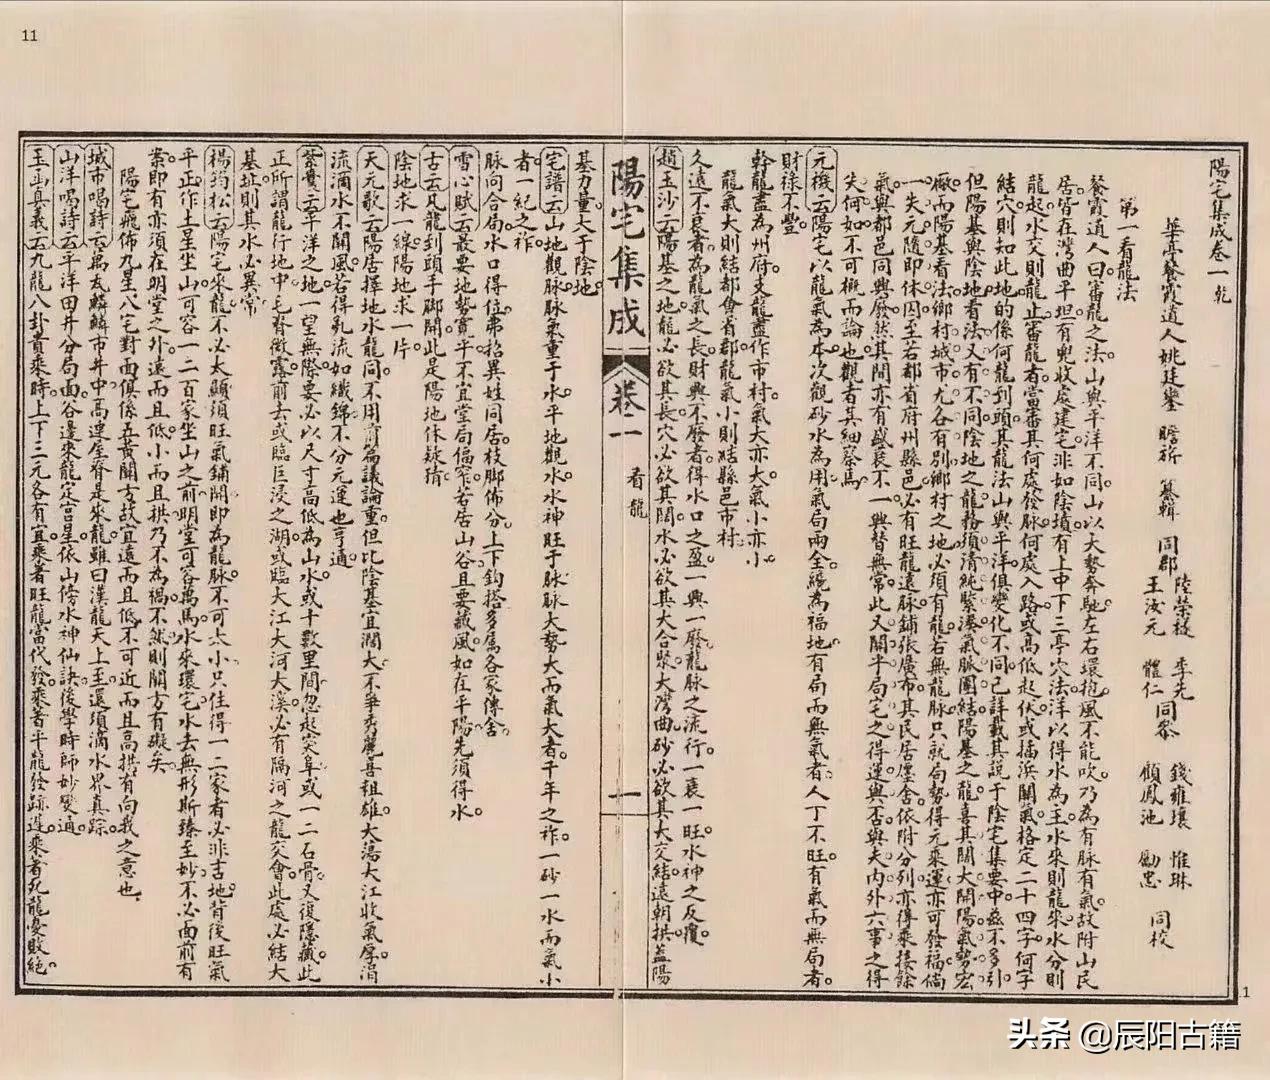 11
陽宅集成卷一乾
華亭餐霞道人姚廷鑾 瞻祈 纂輯 同郡 王汝元 體仁 同參 顧鳳池 勵忠 同校
陸榮𥞊 李先 錢雍壤 惟琳
第一看龍法
餐霞道人曰審龍之法山與平洋不同山以大勢奔馳左右環抱風不能吹乃為有脉有氣故附山民
居皆在灣曲平坦有兜收處建宅非如陰墳有上中下三亭穴法洋以得水為主水來則龍來水分則
龍起水交則龍止審龍者當審其何處發脉何處入路或高低起伏或插浜關氣格定二十四字何字
結穴則知此地的係何龍到頭其龍法山與平洋俱變化不同已詳載其說于陰宅集要中茲不多引
但陽基與陰地看法又有不同陰地之龍務須清純緊湊氣脉團結陽基之龍喜其闊大開陽氣勢宏
厰而陽基看法鄉村城市尤各有別鄉村之地必須有龍若無龍脉只就局勢得元乘運亦可發福倘
一失元隨即休囚至若都省府州縣邑必有旺龍遠脉鋪張廣布其民居廛舍依附分列亦得乘接餘
氣與都邑同興廢然其間亦有盛衰不一興替無常此又關乎局宅之得運與否與夫內外六事之得
失何如不可概而論也觀者其細察焉
元機云陽宅以龍氣為本次觀砂水為用氣局兩全纔為福地有局而無氣者人丁不旺有氣而無局者
財祿不豐
幹龍盡為州府支龍盡作市村氣大亦大氣小亦小
龍氣大則結都會省郡龍氣小則結縣邑市村
久遠不衰者為龍氣之長財興不廢者得水口之盈一興一廢龍脉之流行一衰一旺水神之反瓊
趙玉沙云陽基之地龍必欲其長穴必欲其闊水必欲其大合聚大灣曲砂必欲其大交結遠朝拱蓋陽
陽宅集成 卷一 看龍 一
基力量大于陰地
宅譜云山地觀脉脉氣重于水平地觀水水神旺于脉脉大勢大而氣大者千年之祚一砂一水而氣小
者一紀之祚
脉向合局水口得位弗招異姓同居枝脚佈分上下鈎搭多属各家傳舍
雪心賦云最要地勢寛平不宜堂局偪窄若居山谷且要藏風如在平陽先須得水
古云凡龍到頭手脚開此是陽地休疑猜
陰地求一線陽地求一片
天元歌云陽居擇地水龍同不用前篇議論重但比陰基宜濶大不爭秀麗喜粗雄大蕩大江收氣厚涓
流滴水不關風若得乱流如織錦不分元運也亨通
紫囊云平洋之地一望無際要必以尺寸高低為山水或十數里間忽起突阜或一二石骨又復隱藏此
正所謂龍行地中毛脊微露前去或臨巨浸之湖或臨大江大河大溪必有隔河之龍交會此處必結大
基址則其水必異常
楊筠松云陽宅來龍不必太顯須旺氣鋪開即為龍脉不可太小只住得一二家者必非吉地背後旺氣
平正作土星坐山可容一二百家坐山之前明堂可容萬馬水來環宅水去無形斯臻至妙不必面前有
案即有亦須在明堂之外遠而且低小而且拱乃不為禍不然則關方有礙矣
陽宅飛佈九星八宅對面俱係五黃關方故宜遠而且低不可近而且高拱有向我之意也
城市喝詩云萬瓦鱗鱗市井中高連屋脊是來龍雖曰漢龍天上至還須滴水界真踪
山洋喝詩云平洋田井分局面谷邊來龍定宫星依山傍水神仙訣後學時師妙變通
玉函真義云九龍八卦貴乘時上下三元各有宜乘着旺龍當代發乘着平龍給跡遲乘着死龍憂敗絶
11
头条 @辰阳古籍